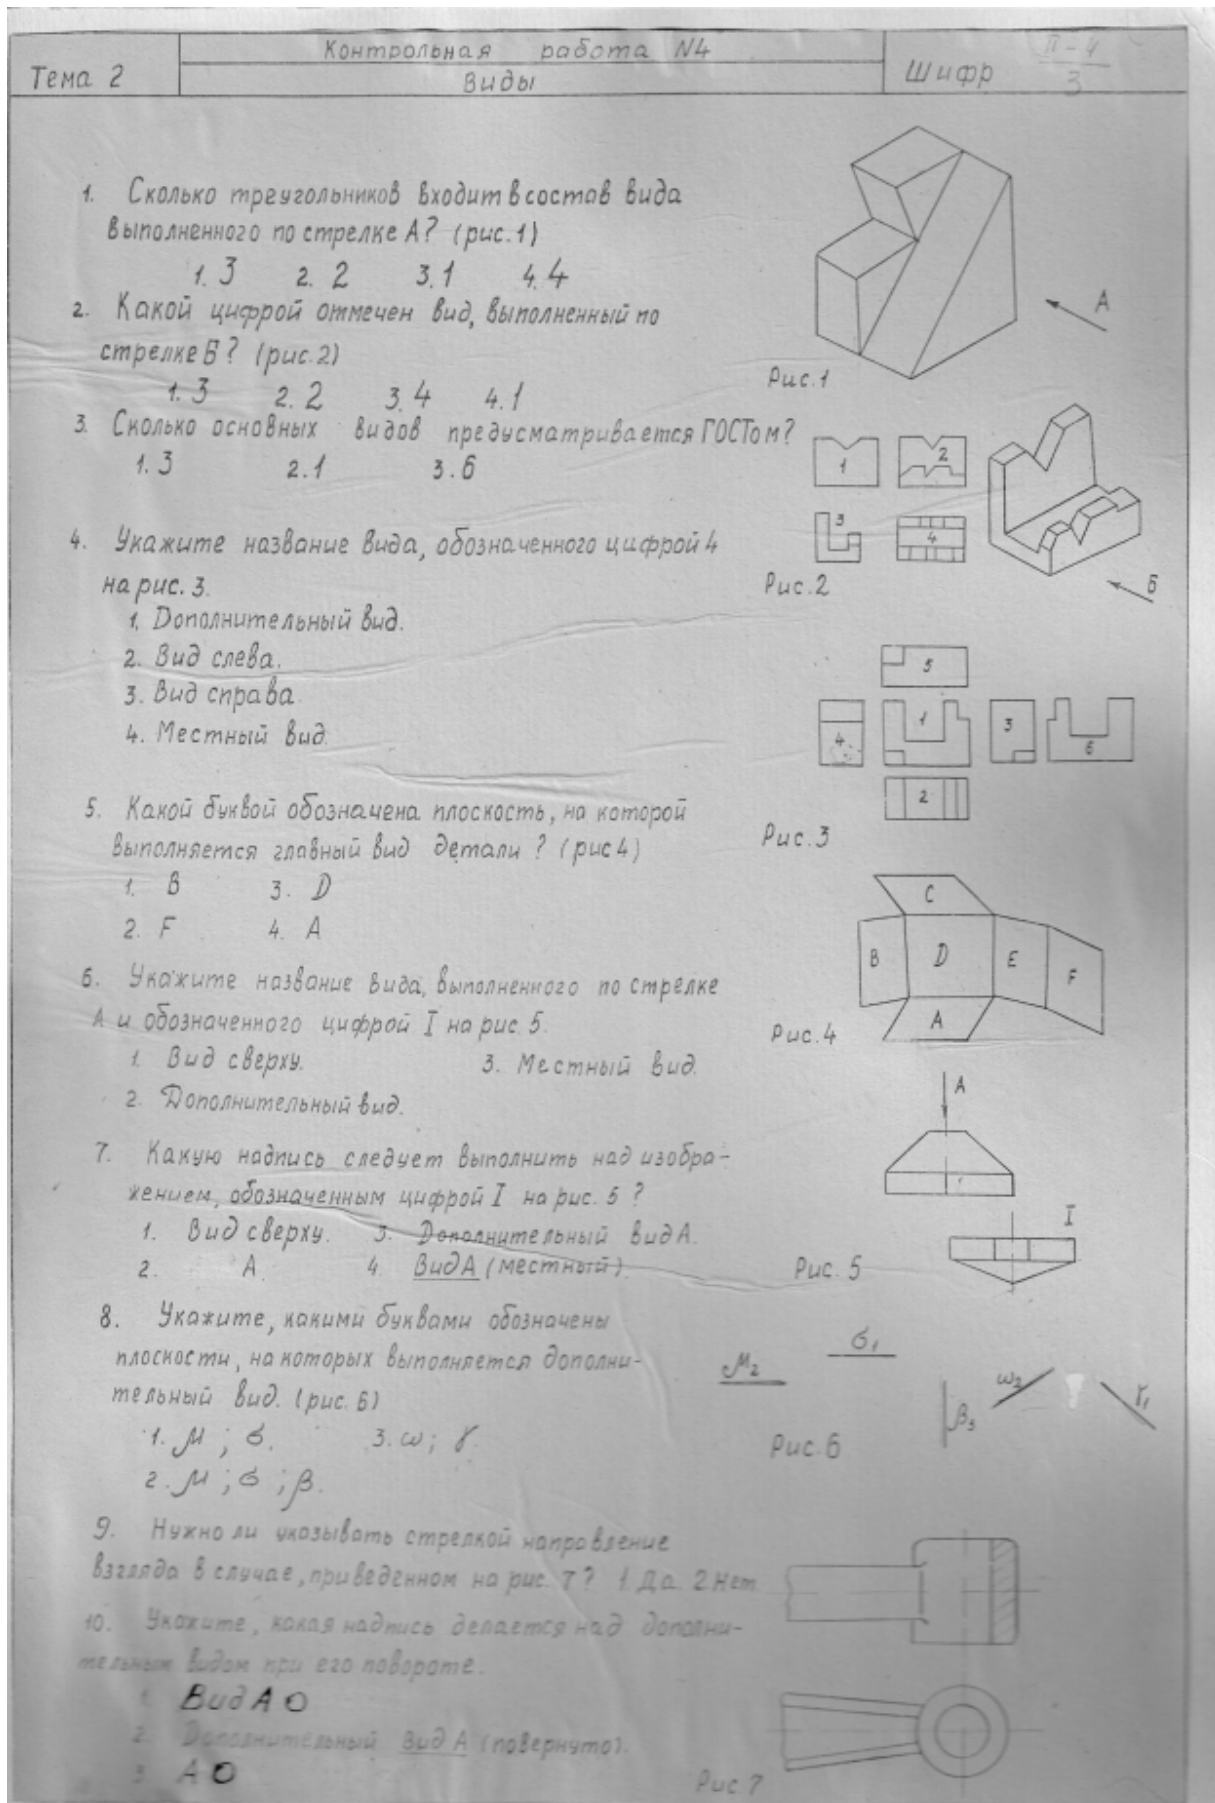 Тема 2
Контрольная работа N4
Виды
Шифр П-4/3
1. Сколько треугольников входит в состав вида
выполненного по стрелке А? (рис.1)
1. 3 2. 2 3. 1 4. 4
2. Какой цифрой отмечен вид, выполненный по
стрелке Б? (рис.2)
1. 3 2. 2 3. 4 4. 1
3. Сколько основных видов предусматривается ГОСТом?
1. 3 2. 1 3. 6
4. Укажите название вида, обозначенного цифрой 4
на рис. 3.
1. Дополнительный вид.
2. Вид слева.
3. Вид справа.
4. Местный вид.
5. Какой буквой обозначена плоскость, на которой
выполняется главный вид детали? (рис 4)
1. B 3. D
2. F 4. A
6. Укажите название вида, выполненного по стрелке
А и обозначенного цифрой I на рис. 5.
1. Вид сверху. 3. Местный вид.
2. Дополнительный вид.
7. Какую надпись следует выполнить над изобра-
жением, обозначенным цифрой I на рис. 5?
1. Вид сверху. 3. Дополнительный вид А.
2. А. 4. Вид А (местный).
8. Укажите, какими буквами обозначены
плоскости, на которых выполняется дополни-
тельный вид. (рис. 6)
1. μ ; σ. 3. ω; γ.
2. μ ; σ ; β.
9. Нужно ли указывать стрелкой направление
взгляда в случае, приведенном на рис. 7? 1. Да. 2. Нет.
10. Укажите, какая надпись делается над дополни-
тельным видом при его повороте.
1. Вид А О
2. Дополнительный вид А (повернуто).
3. А О
А
Рис.1
1
2
3
4
Б
Рис.2
5
4
1
3
6
2
Рис.3
C
B
D
E
F
A
Рис.4
А
I
Рис. 5
μ2
σ1
β3
ω2
γ1
Рис.6
Рис 7